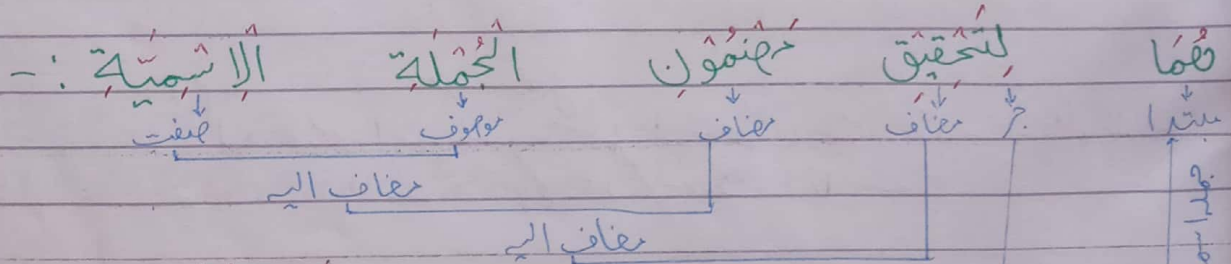 هُمَا لِتَحْقِيْقِ مَضْمُوْنِ الْجُمْلَةِ الْاِسْمِيَّةِ :-
مبتدا جر مضاف مضاف موصوف صفت
مضاف الیہ
مضاف الیہ